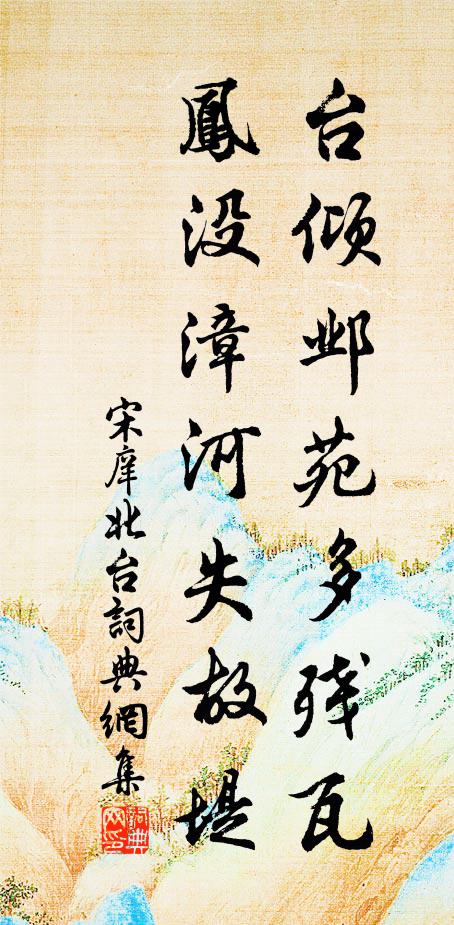 台倾邺苑多残瓦
鳳没漳河失故堤
宋庠北台詞典網集
詞典网印